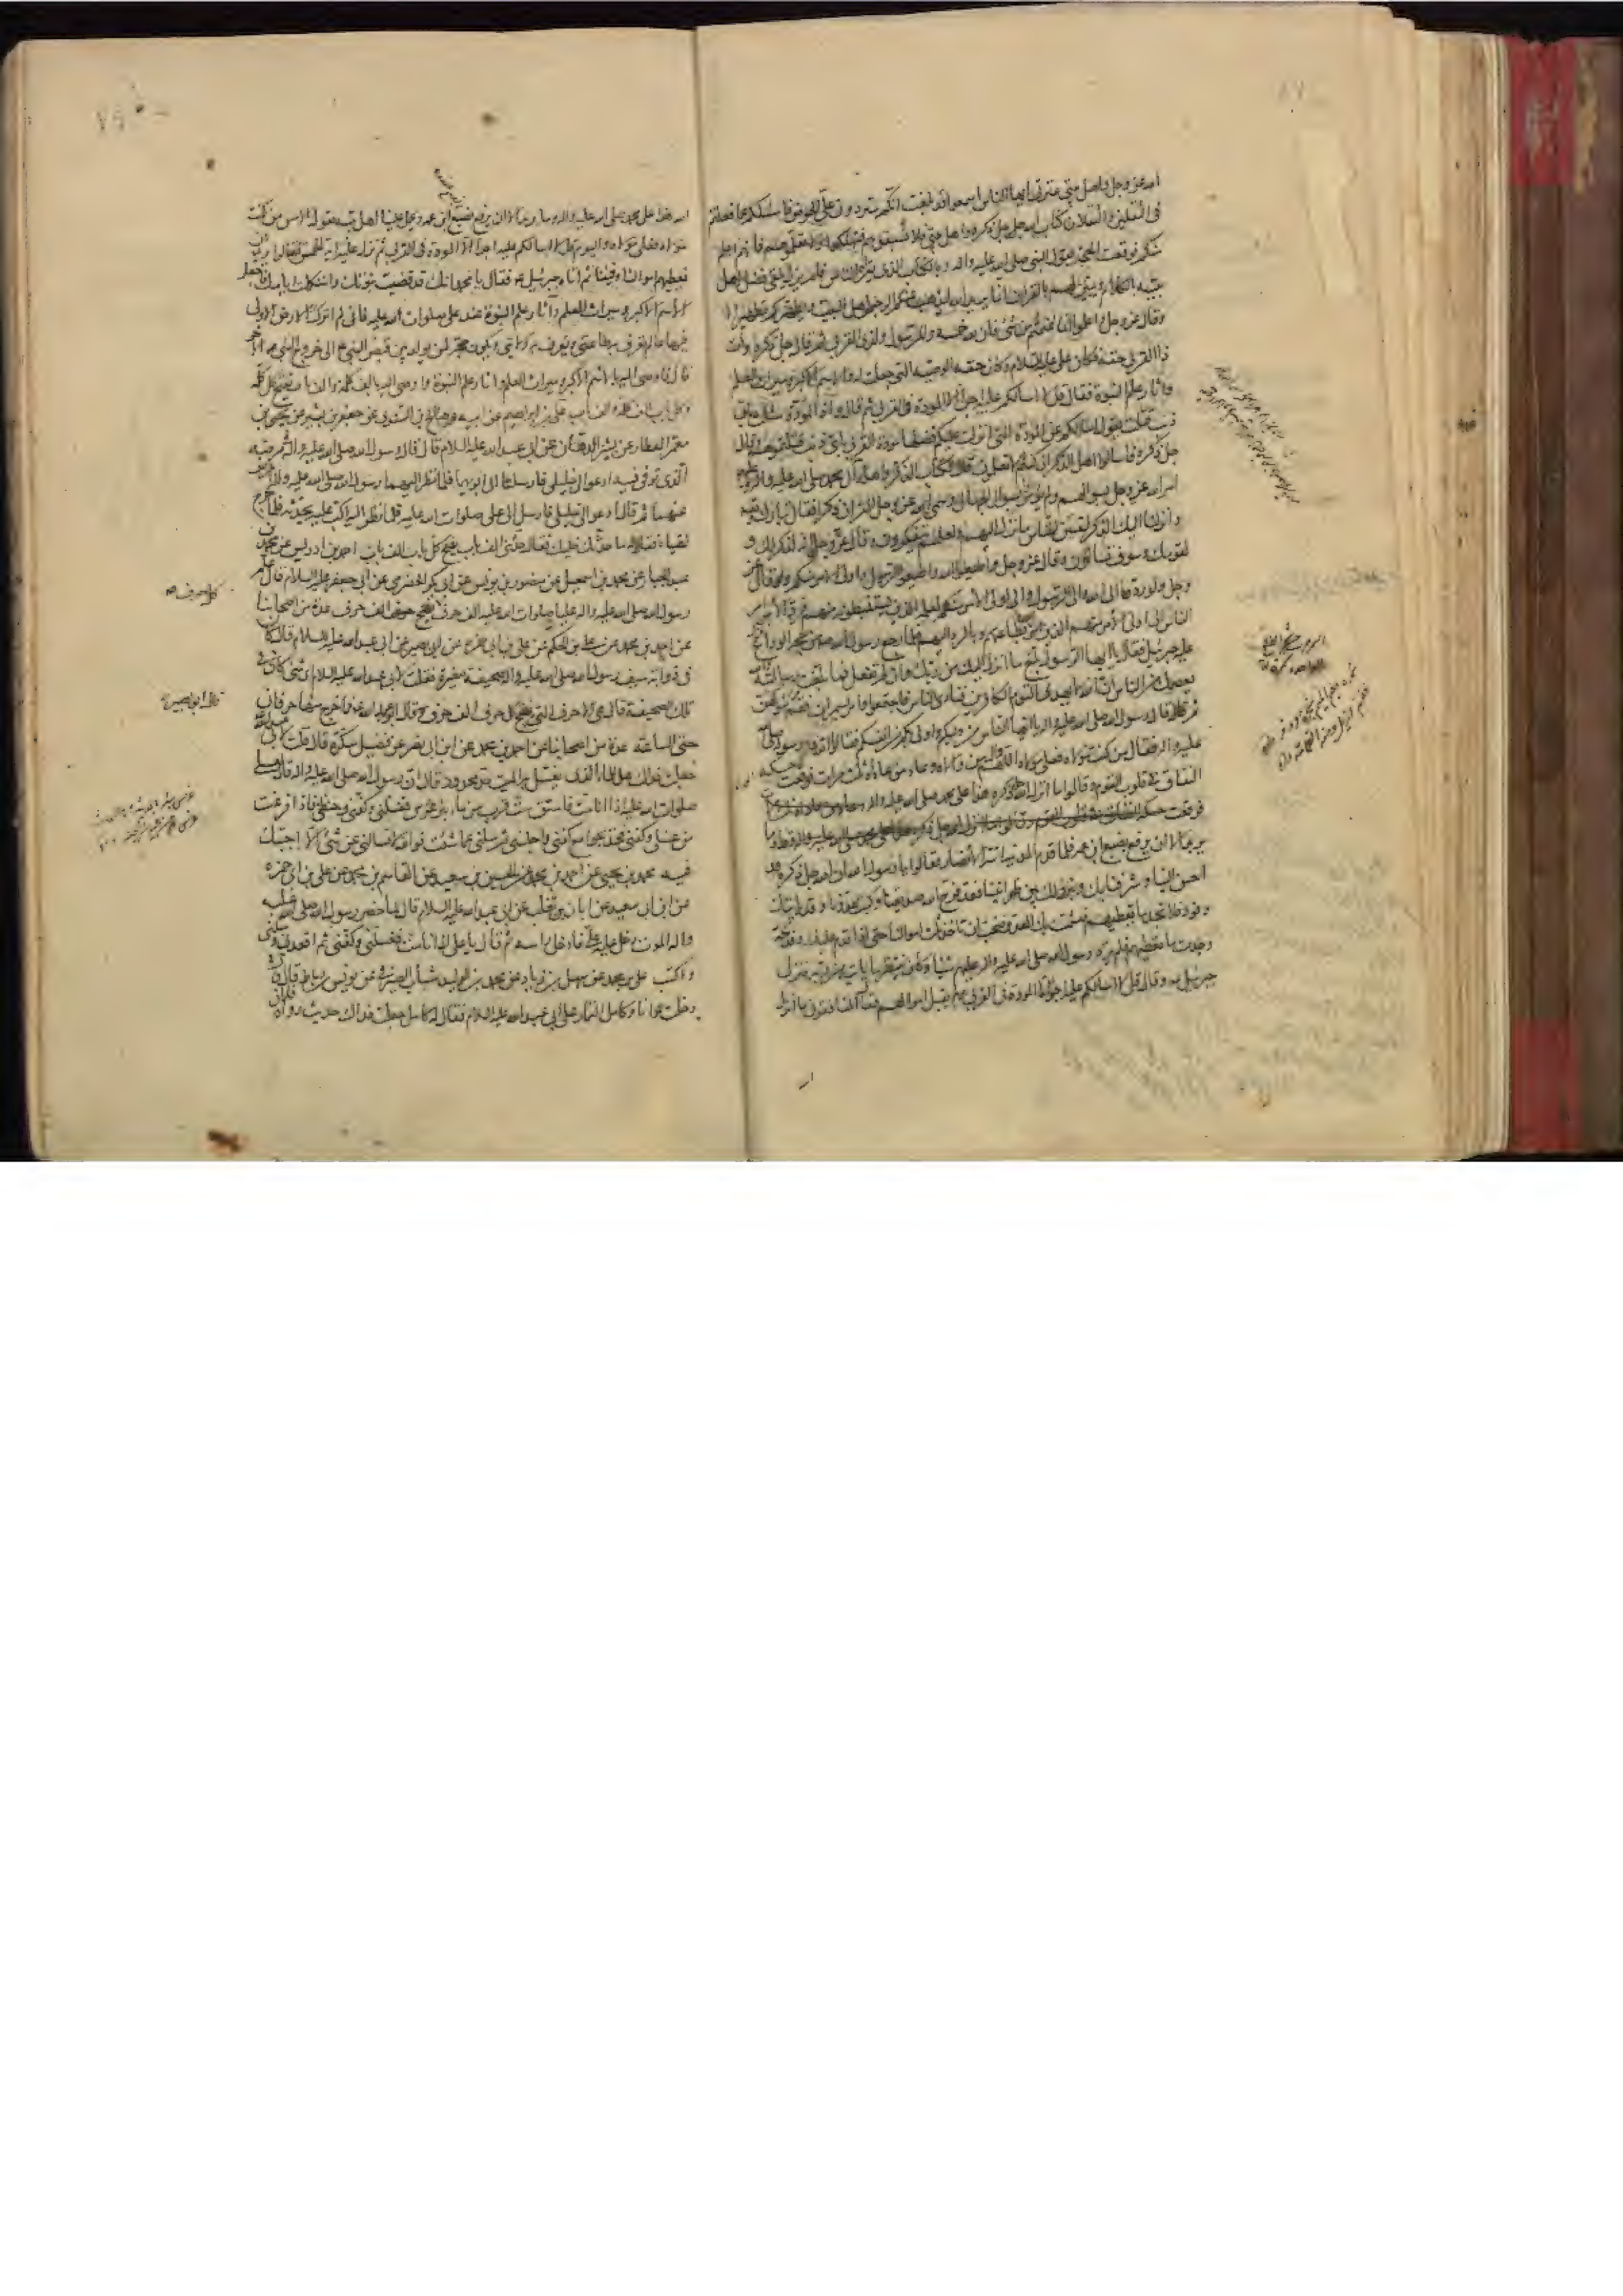 الله عز وجل واهل بيتي عترتي ايها الناس اسمعوا وقد بلغت انكم ستردون علي الحوض فاسئلكم عما فعلتم
في الثقلين والثقلان كتاب الله جل ذكره واهل بيتي فلا تسبقوهم فتهلكوا ولا تعلموهم فانهم اعلم
منكم فوقعت الحجة بقول النبي صلى الله عليه واله وبالكتاب الذي يقرأه الناس فلم يزل يلقي فضل اهل
بيته بالكلام ويبين لهم بالقران انما يريد الله ليذهب عنكم الرجس اهل البيت ويطهركم تطهيرا
وقال عز وجل واعلموا انما غنمتم من شئ فان لله خمسه وللرسول ولذي القربى ثم قال جل ذكره وآت
ذا القربى حقه فكان علي عليه السلام وكان حقه الوصية التي جعلت له والاسم الاكبر وميراث العلم
واثار علم النبوة فقال قل لا اسالكم عليه اجرا الا المودة في القربى ثم قال واذا المودة سئلت باي
ذنب قتلت يقول اسالكم عن المودة التي انزلت عليكم فضلها مودة القربى باي ذنب قتلتموهم وقال
جل ذكره فاسالوا اهل الذكر ان كنتم لا تعلمون قال الكتاب الذكر واهله آل محمد صلى الله عليه واله
امر الله عز وجل بسؤالهم ولم يؤمروا بسؤال الجهال وسمى الله عز وجل القران ذكرا فقال تبارك
وانزلنا اليك الذكر لتبين للناس ما نزل اليهم ولعلهم يتفكرون وقال عز وجل وانه لذكر لك و
لقومك وسوف تسالون وقال عز وجل اطيعوا الله واطيعوا الرسول واولي الامر منكم وقال عز
وجل ولو ردوه الى الله والى الرسول والى اولي الامر منهم لعلمه الذين يستنبطونه منهم فرد الامر
الناس الى اولي الامر منهم الذين امر بطاعتهم وبالرد اليهم فلما رجع رسول الله ص من حجة الوداع
عليه جبرئيل فقال يا ايها الرسول بلغ ما انزل اليك من ربك وان لم تفعل فما بلغت رسالته والله
يعصمك من الناس ان الله لا يهدي القوم الكافرين فنادى الناس فاجتمعوا وامر بسمرات فقم شوكهن
ثم قال قال رسول الله صلى الله عليه واله يا ايها الناس من وليكم واولى بكم من انفسكم فقالوا الله ورسوله
عليه واله فقال من كنت مولاه فعلي مولاه اللهم وال من والاه وعاد من عاداه ثلث مرات فوقعت حسكة
النفاق في قلوب القوم وقالوا ما انزل الله جل ذكره هذا على محمد صلى الله عليه واله
يريد الا ان يرفع بضبع ابن عمه فلما قدم المدينة اتته الانصار فقالوا يا رسول الله ان الله جل ذكره قد
احسن الينا وشرفنا بك وبنزولك بين ظهرانينا فقد فرح الله صديقنا وكبت عدونا وقد ياتيك
وفود فلا تجد ما تعطيهم فيشمت بك العدو فنحب ان تاخذ ثلث اموالنا حتى اذا قدم عليك وفد مكة
وجدت ما تعطيهم فلم يرد رسول الله صلى الله عليه واله عليهم شيئا وكان ينتظر ما ياتيه من ربه فنزل
جبرئيل ع وقال قل لا اسالكم عليه اجرا الا المودة في القربى ولم يقبل اموالهم فقال المنافقون ما انزل
الله هذا على محمد صلى الله عليه واله وما يريد الا ان يرفع بضبع ابن عمه ويحمل علينا اهل بيته يقول امس من كنت
مولاه فعلي مولاه واليوم قل لا اسالكم عليه اجرا الا المودة في القربى ثم نزل عليه اية الخمس فقالوا يريد ان
نعطيهم اموالنا وفيئنا ثم اتاه جبرئيل ع فقال يا محمد انك قد قضيت نبوتك واستكملت ايامك فاجعل
الاسم الاكبر وميراث العلم وآثار علم النبوة عند علي صلوات الله عليه فاني لم اترك الارض الا ولي
فيها عالم تعرف به طاعتي وتعرف به ولايتي ويكون حجة لمن يولد بين قبض النبي الى خروج النبي الاخر
قال فاوصى اليه بالاسم الاكبر وميراث العلم واثار علم النبوة واوصى اليه بالف كلمة والف باب يفتح كل كلمة
وكل باب الف كلمة والف باب علي بن ابراهيم عن ابيه وصالح بن السندي عن جعفر بن بشير عن يحيى بن
معمر العطار عن بشير الدهان عن ابي عبد الله عليه السلام قال قال رسول الله صلى الله عليه واله في مرضه
الذي توفي فيه ادعوا لي خليلي فارسلتا الى ابويهما فلما نظر اليهما رسول الله صلى الله عليه واله اعرض
عنهما ثم قال ادعوا لي خليلي فارسل الى علي صلوات الله عليه فلما نظر اليه اكب عليه يحدثه فلما خرج
لقياه فقالا له ما حدثك خليلك فقال حدثني الف باب يفتح كل باب الف باب احمد بن ادريس عن محمد بن
عبد الجبار عن محمد بن اسمعيل عن منصور بن يونس عن ابي بكر الحضرمي عن ابي جعفر عليه السلام قال علم
رسول الله صلى الله عليه واله عليا صلوات الله عليه الف حرف يفتح حرف الف حرف عدة من اصحابنا
كل حرف صح
عن احمد بن محمد عن علي بن الحكم عن علي بن ابي حمزة عن ابي بصير عن ابي عبد الله عليه السلام قال كان
في ذؤابة سيف رسول الله صلى الله عليه واله صحيفة صغيرة فقلت لابي عبد الله عليه السلام اي شئ كان في
تلك الصحيفة قال هي الاحرف التي يفتح كل حرف الف حرف قال ابو عبد الله ع فما خرج منها حرفان
قال ابو بصير
حتى الساعة عدة من اصحابنا عن احمد بن محمد عن ابن ابي نصر عن فضيل سكرة قال قلت لابي عبد الله
جعلت فداك هل للماء الذي يغسل به الميت حد محدود قال ان رسول الله صلى الله عليه واله قال لعلي
صلوات الله عليه اذا انا مت فاستق ست قرب من ماء بئر غرس فغسلني وكفني وحنطني فاذا فرغت
من غسلي وكفني فخذ بجوامع كفني واجلسني ثم سلني عما شئت فوالله لا تسالني عن شئ الا اجبتك
فيه محمد بن يحيى عن احمد بن محمد عن الحسين بن سعيد عن القاسم بن محمد عن علي بن ابي حمزة
عن ابن ابي سعيد عن ابان بن تغلب عن ابي عبد الله عليه السلام قال لما حضر رسول الله صلى الله عليه
واله الموت دخل عليه علي فادخل راسه ثم قال يا علي اذا انا مت فغسلني وكفني ثم اقعدني وسلني
واكتب علي بن محمد عن سهل بن زياد عن محمد بن الوليد شباب الصيرفي عن يونس بن رباط قال
دخلت انا وكامل التمار على ابي عبد الله عليه السلام فقال له كامل جعلت فداك حديث رواه فلان